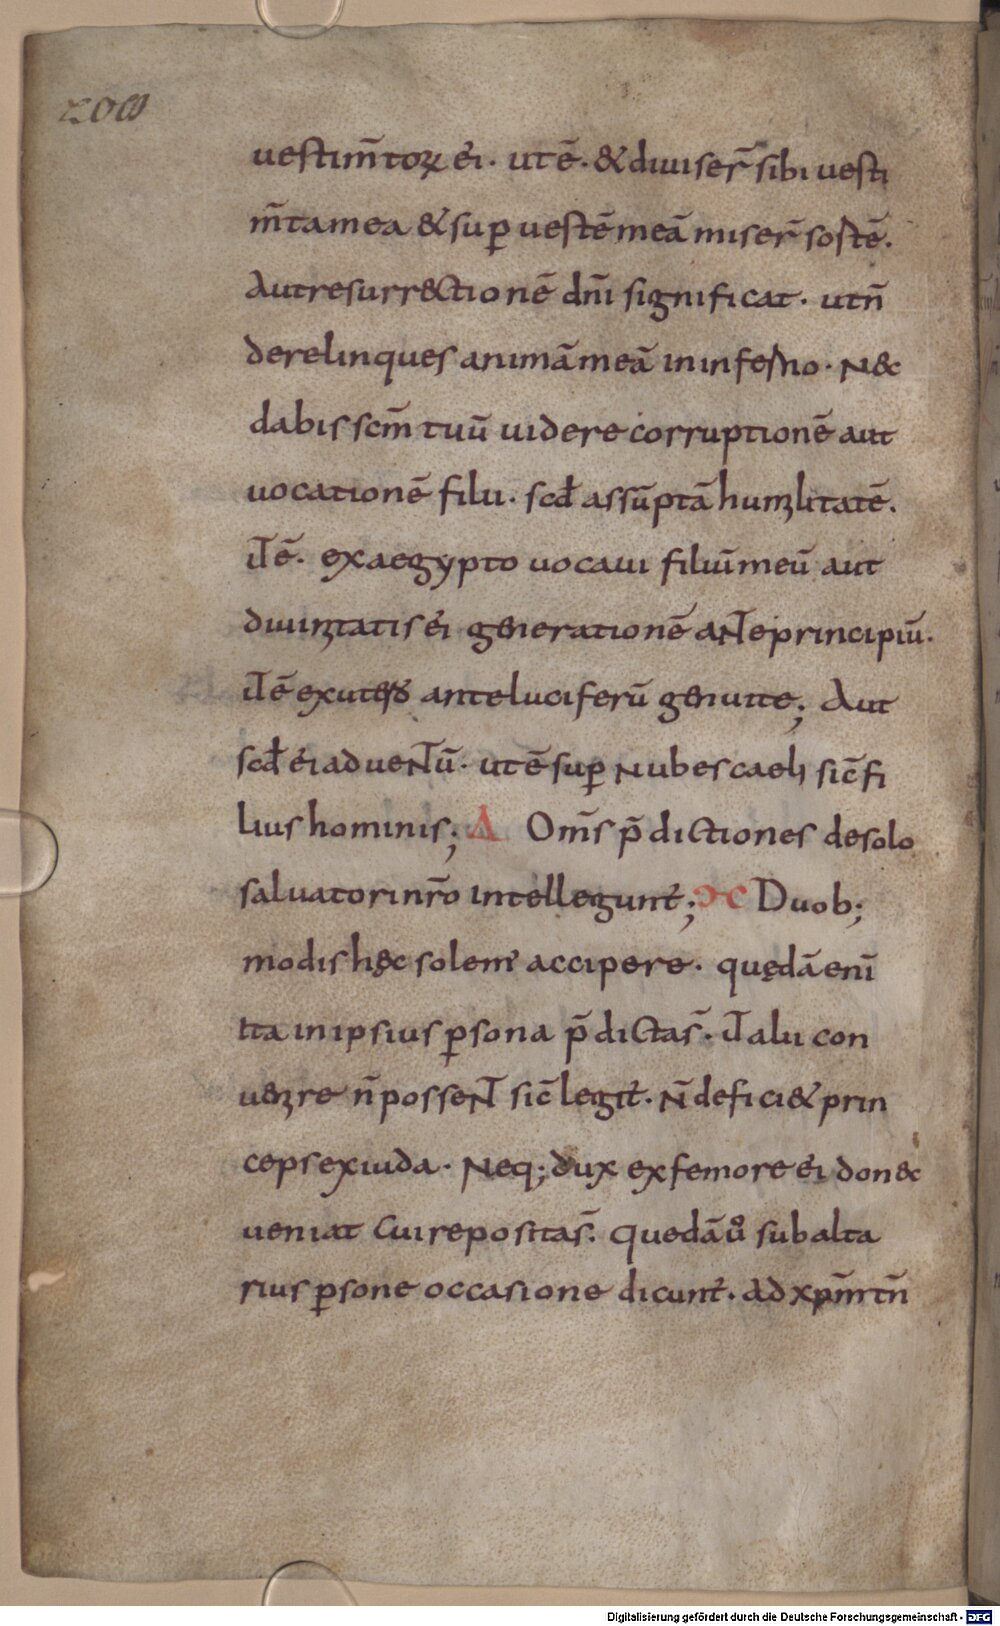 uestim̄toꝝ ei᾽. ut ē. & diuiser̄ sibi uesti
m̄ta mea & suꝑ uestē meā miser̄ sostē.
Aut resurrectionē dn̄i significat. ut n̄
derelinques animā meā in inferno. Nec
dabis scm̄ tuū uidere corruptionē aut
uocationē filii. scđ assūptā humilitatē.
ut ē. ex aegypto uocaui filiū meū aut
diuinitatis ei᾽ generationē ante principiū.
ut ē ex utero ante luciferū genui te; Aut
scđ ei᾽ aduentū. ut ē suꝑ nubes caeli sic̄ fi
lius hominis; Δ Om̄s p̄dictiones de solo
saluatori nr̄o intellegunt᾽; ϽϹ Duob;
modis hęc solem᾽ accipere. quędā enī
ita in ipsius ꝑsona p̄dicta s̄. ut alii con
uenire n̄ possent sic̄ legit᾽. N̄ defici& prin
ceps ex iuda. Neq; dux ex femore ei᾽ donec
ueniat cui reposita s̄. Quedā uͦ sub alta
rius ꝑsone occasione dicunt᾽. ad xp̄m tn̄
Digitalisierung gefördert durch die Deutsche Forschungsgemeinschaft - DFG